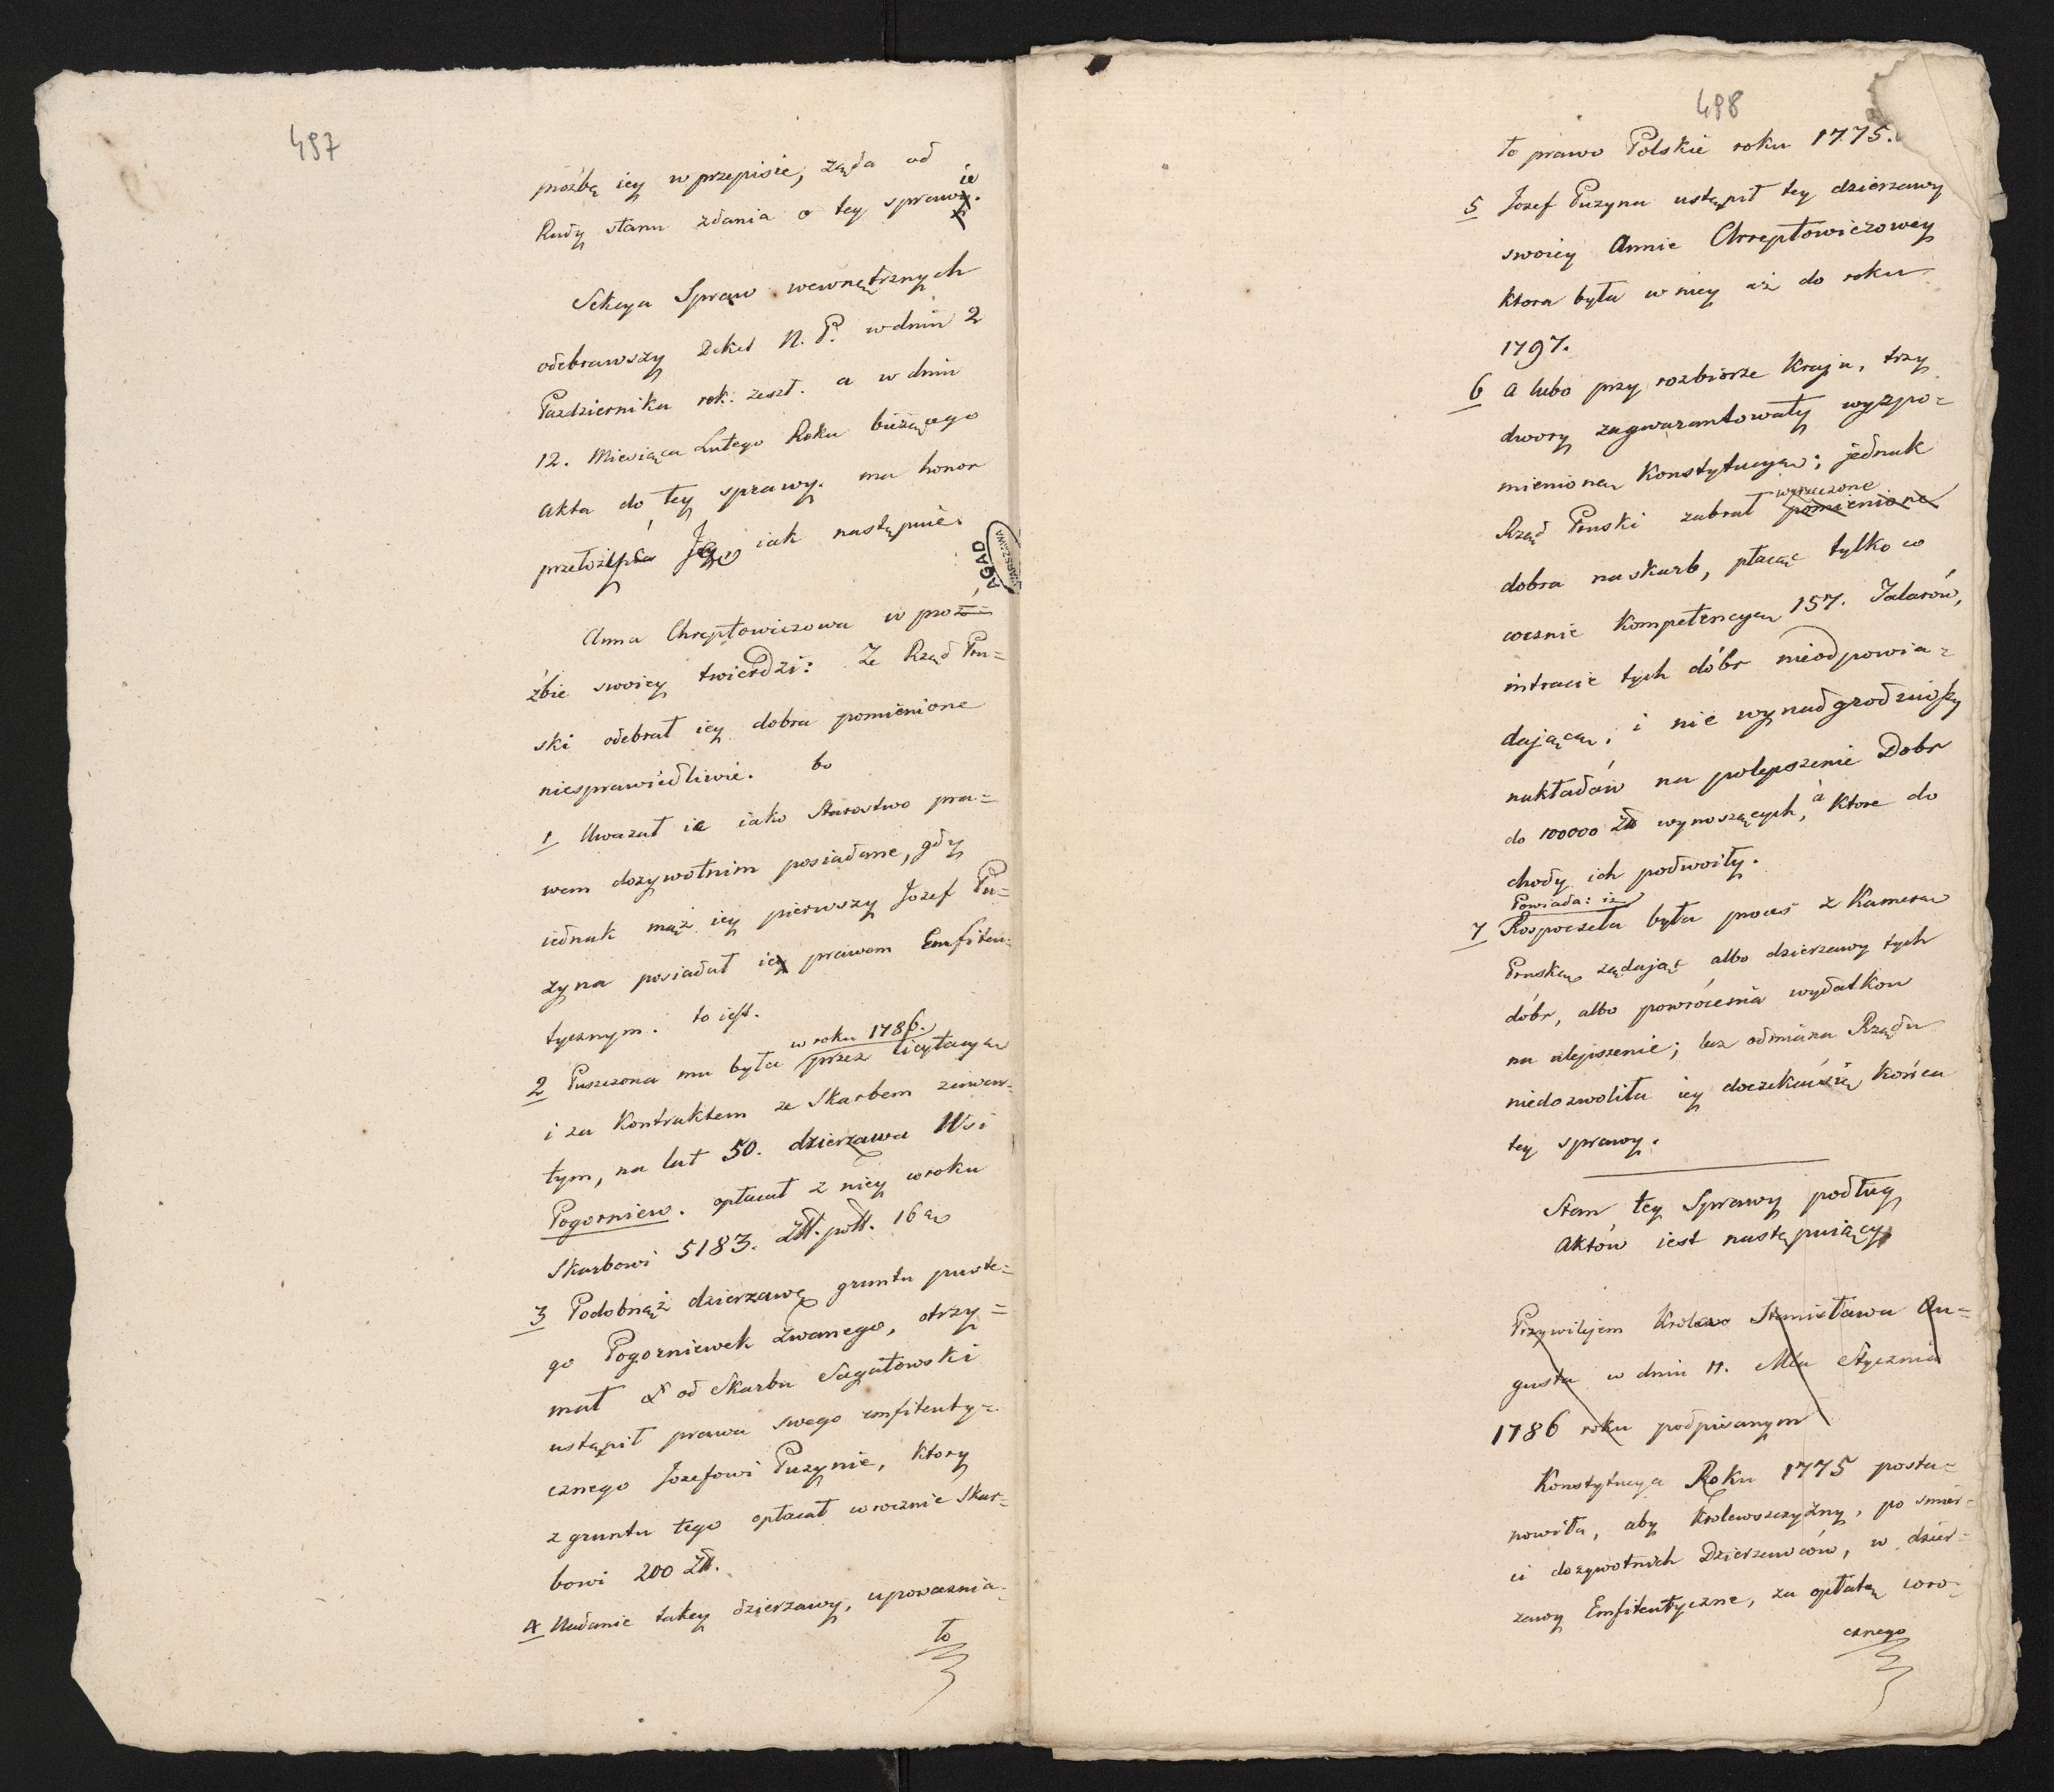 497
proźbą iey w przepisie, ząda od
Rady stanu zdania o tey sprawie.
Sekcya Spraw wewnętrznych
odebrawszy Dekret N. P. w dniu 2
Pazdziernika rok: zeszł. a w dniu
12. Miesiąca Lutego Roku bieżącego
akta do tey sprawy. ma honor
przełożyć iak następuie.
AGAD
WARSZAWA
Anna Chreptowiczowa w pro
źbie swoiey twierdzi: Ze Rząd Pru=
ski odebrał iey dobra pomienione
niesprawiedliwie. bo
1 Uwazał ie iako Starostwo pra=
wem dozywotnim posiadane, gdy
iednak mąż iey pierwszy Jozef Pu=
zyna posiadał ie prawem Emfiteu=
tycznym. to iest.
w roku 1786.
2 Puszczona mu była przez licytacyą
i za Kontraktem ze Skarbem zawar=
tym, na lat 50. dzierzawa Wsi
Pogorniew. opłacał z niey w roku
Skarbowi 5183. Złł. poll. 16 gr
3 Podobnąż dzierzawę gruntu puste=
go Pogorniewek zwanego, otrzy=
mał od Skarbu Sagatowski
ustąpił prawa swego emfiteuty=
cznego Jozefowi Puzynie, ktory
z gruntu tego opłacał corocznie Skar=
bowi 200 Złł.
4 Nadanie takey dzierzawy, upowaznia=
to
498
to prawo Polskie roku 1775.
5 Jozef Puzyna ustąpił tey dzierzawy
swoiey Annie Chreptowiczowey
ktora była w niey aż do roku
1797.
6 a lubo przy rozbiorze Kraju, trzy
dwory zagwarantowały wyzpo=
mnioną Konstytucyą; jednak
wyrzeczone
Rząd Pruski zabrał pomienione
dobra na skarb, płacąc tylko co
rocznie Kompetencyą 157. Talarów,
intracie tych dóbr nieodpowia=
dającą, i nie wynadgrodziwszy
nakładów na polepszenie Dobr
do 100000 Zł wynoszących, a ktore do
chody ich podwoiły.
Powiada: iż
7 Rospoczęta była proces z Kamerą
Pruską ządając albo dzierzawy tych
dóbr, albo powrócenia wydatkow
na ulepszenie; lecz odmiana Rządu
niedozwoliła iey doczekać się Końca
tey sprawy.
Stan tey Sprawy podług
Aktów iest następuiący
Przywilejem Krola Stanisława Au=
gusta w dniu 11. Mca Stycznia
1786 roku podpisanym
Konstytucya Roku 1775 posta=
nowiła, aby Krolewszczyzny, po smier=
ci dozywotnich Dzierzawców, w dzier=
zawy Emfiteutyczne, za opłatą coro=
cznego